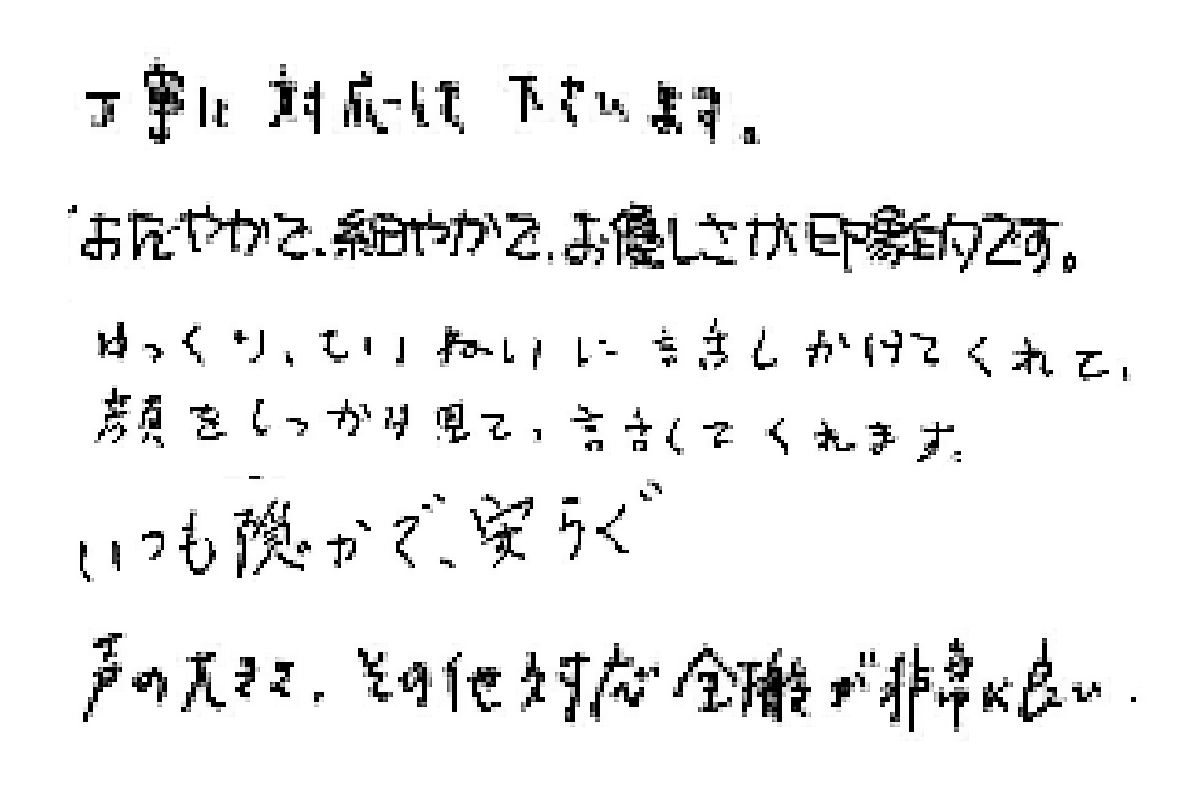 丁寧に対応して下さいます。
おだやかで、細やかで、お優しさが印象的です。
ゆっくり、ていねいに話しかけてくれて、
顔をしっかり見て、話してくれます。
いつも穏かで、安らぐ
声の大きさ、その他対応全般が非常に良い.